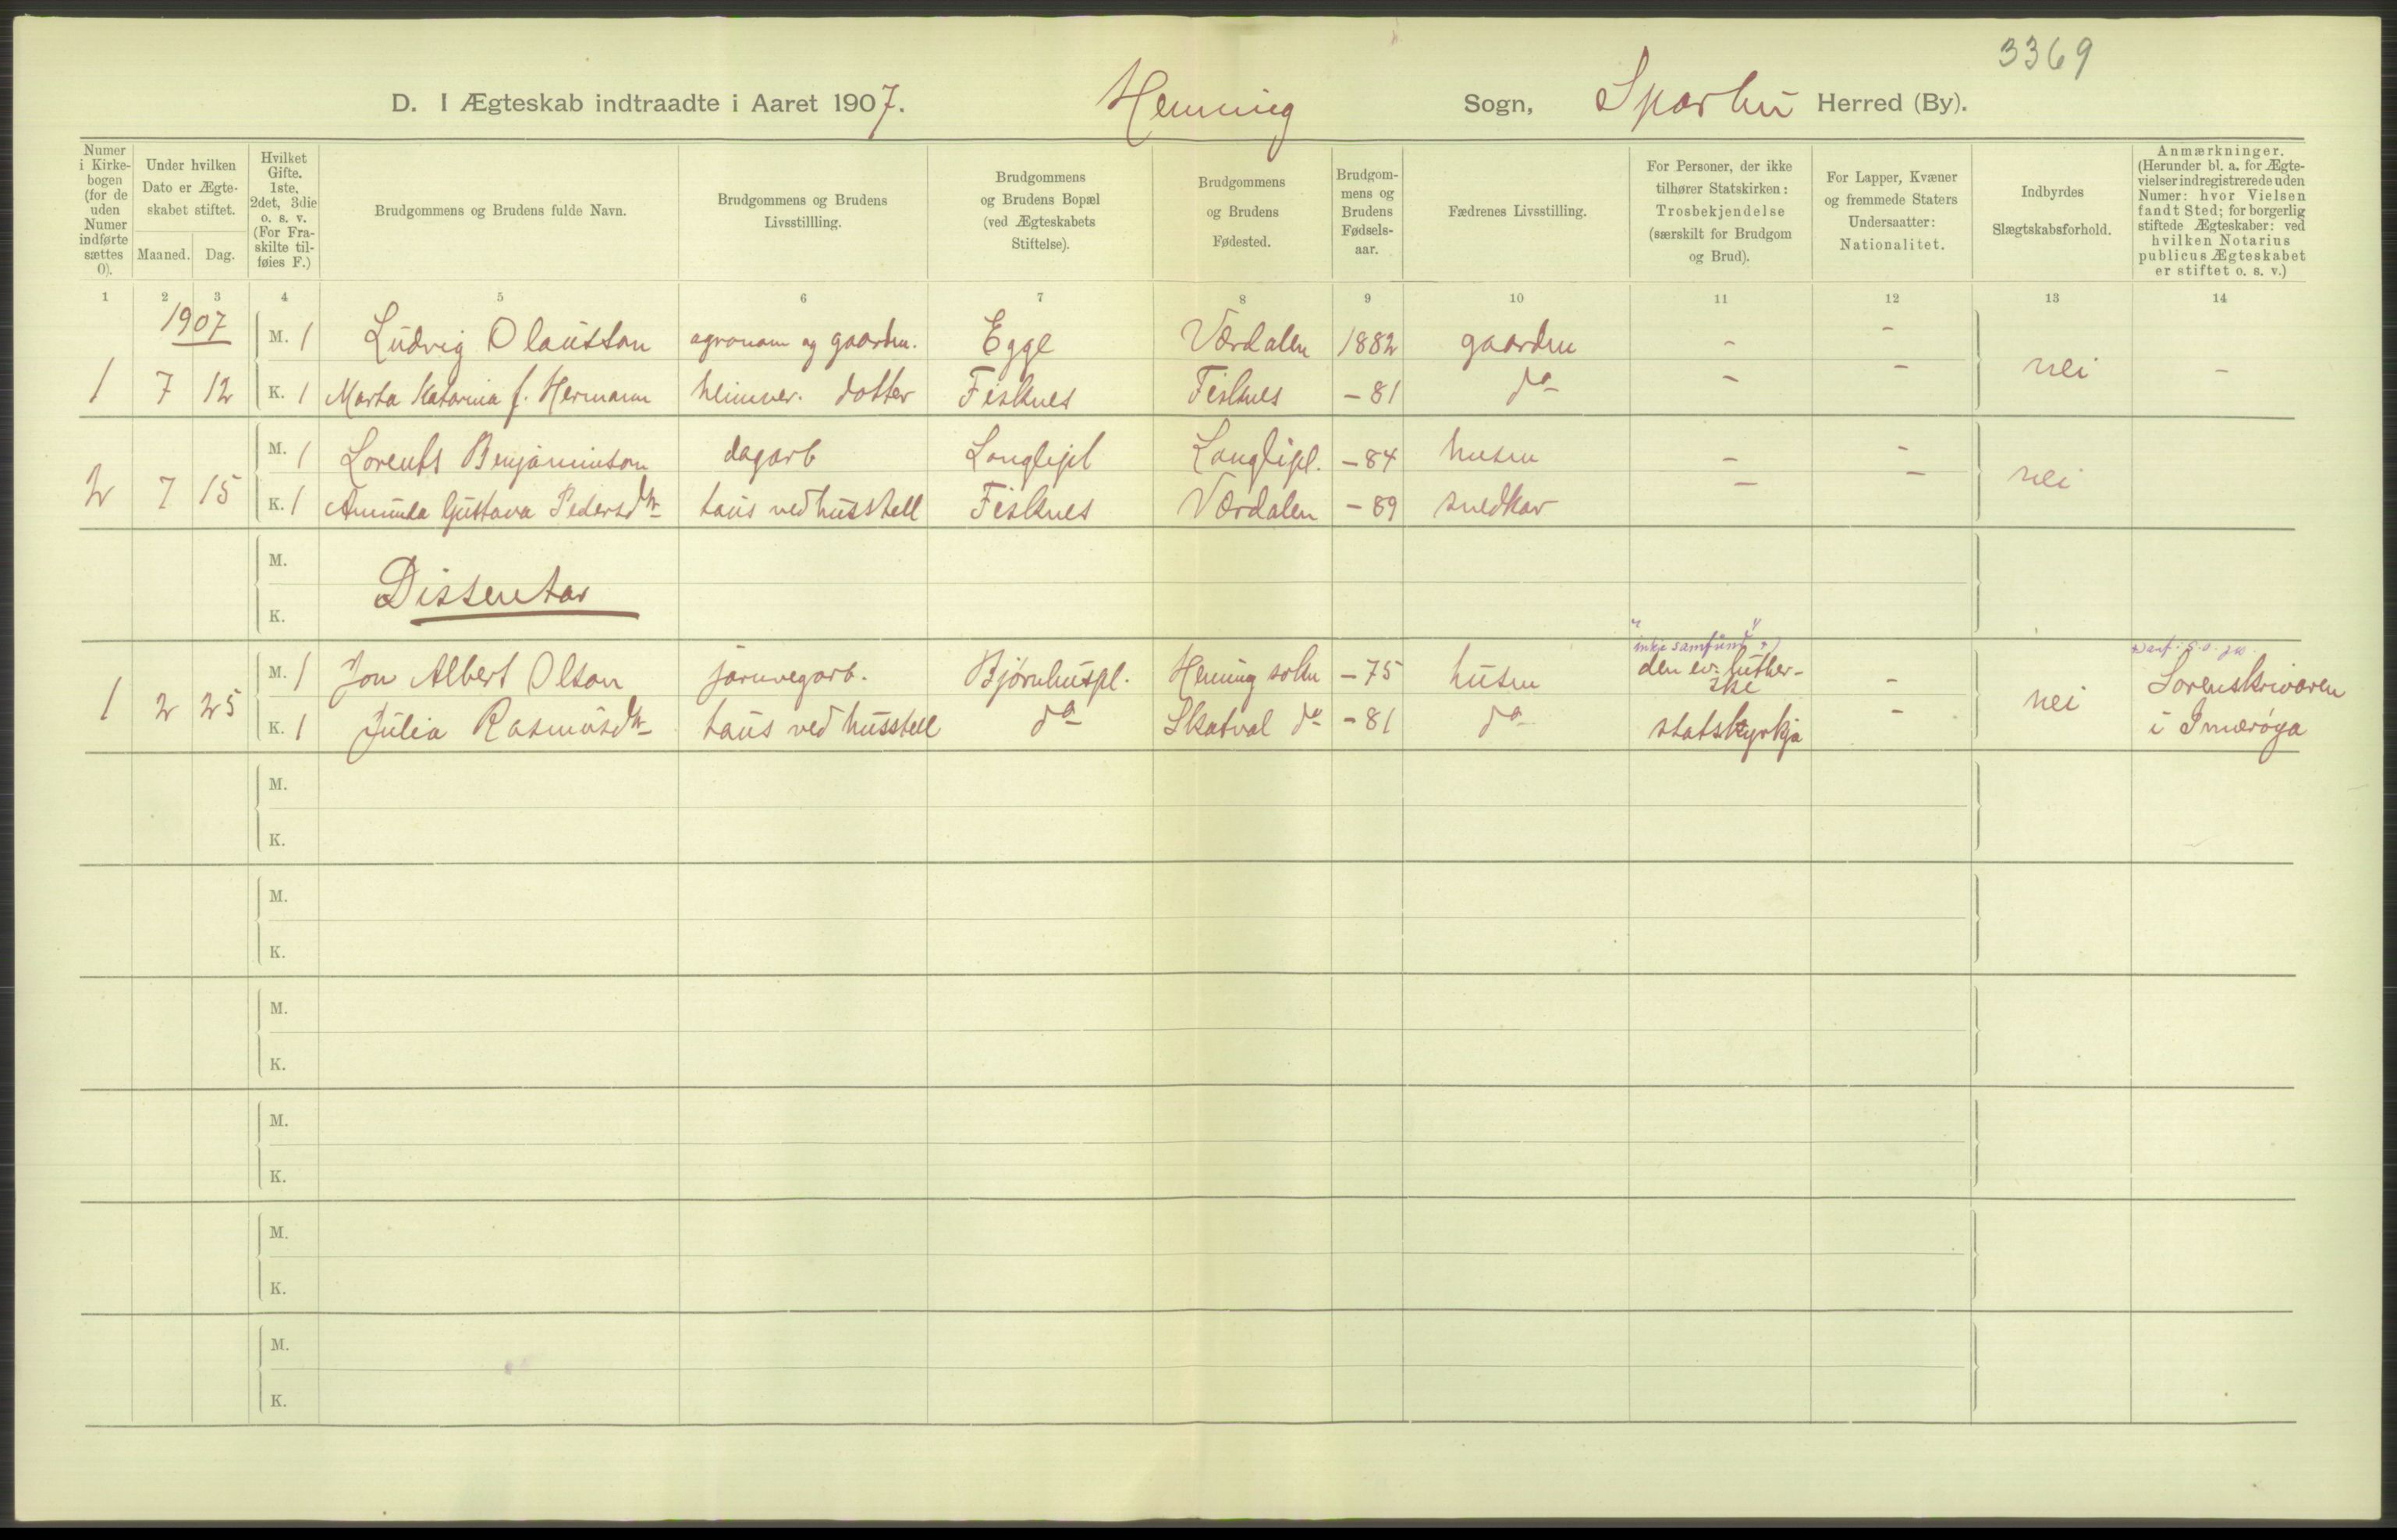 3369
D. I Ægteskab indtraadte i Aaret 1907. Henning Sogn, Sparbu Herred (By).
Numer i Kirke-bogen (for de uden Numer indførte sættes 0).
Under hvilken Dato er Ægte-skabet stiftet.
Maaned. Dag.
Hvilket Gifte. 1ste, 2det, 3die o. s. v. (For Fra-skilte til-føies F.)
Brudgommens og Brudens fulde Navn.
Brudgommens og Brudens Livsstillling.
Brudgommens og Brudens Bopæl (ved Ægteskabets Stiftelse).
Brudgommens og Brudens Fødested.
Brudgom-mens og Brudens Fødsels-aar.
Fædrenes Livsstilling.
For Personer, der ikke tilhører Statskirken: Trosbekjendelse (særskilt for Brudgom og Brud).
For Lapper, Kvæner og fremmede Staters Undersaatter: Nationalitet.
Indbyrdes Slægtskabsforhold.
Anmærkninger. (Herunder bl. a. for Ægte-vielser indregistrerede uden Numer: hvor Vielsen fandt Sted; for borgerlig stiftede Ægteskaber: ved hvilken Notarius publicus Ægteskabet er stiftet o. s. v.)
1 2 3 4 5 6 7 8 9 10 11 12 13 14
1907
M. 1 Ludvig Olausson agronom og gaardm. Egge Værdalen 1882 gaardm - -
1 7 12 K. 1 Marta Katarina f. Hermann heimver. dotter Fisknes Fisknes - 81 do - - nei -
M. 1 Lorents Benjaminson dagarb Langlipl Langlipl. - 84 husm - -
2 7 15 K. 1 Amunda Gustava Pedersdtr taus ved husstell Fisknes Værdalen - 89 snedkar - - nei
M.
K.
Dissentar
"inkje samfund" +)
M. 1 Jon Albert Olson jarnvegarb. Bjørnhuspl. Henning sokn - 75 husm den ev. luther-ske - Sorenskrivaren
1 2 25 K. 1 Julia Rasmusdtr taus ved husstell do Skatval do - 81 do statskyrkja - nei i Inderøya
M.
K.
M.
K.
M.
K.
M.
K.
M.
K.
M.
K.